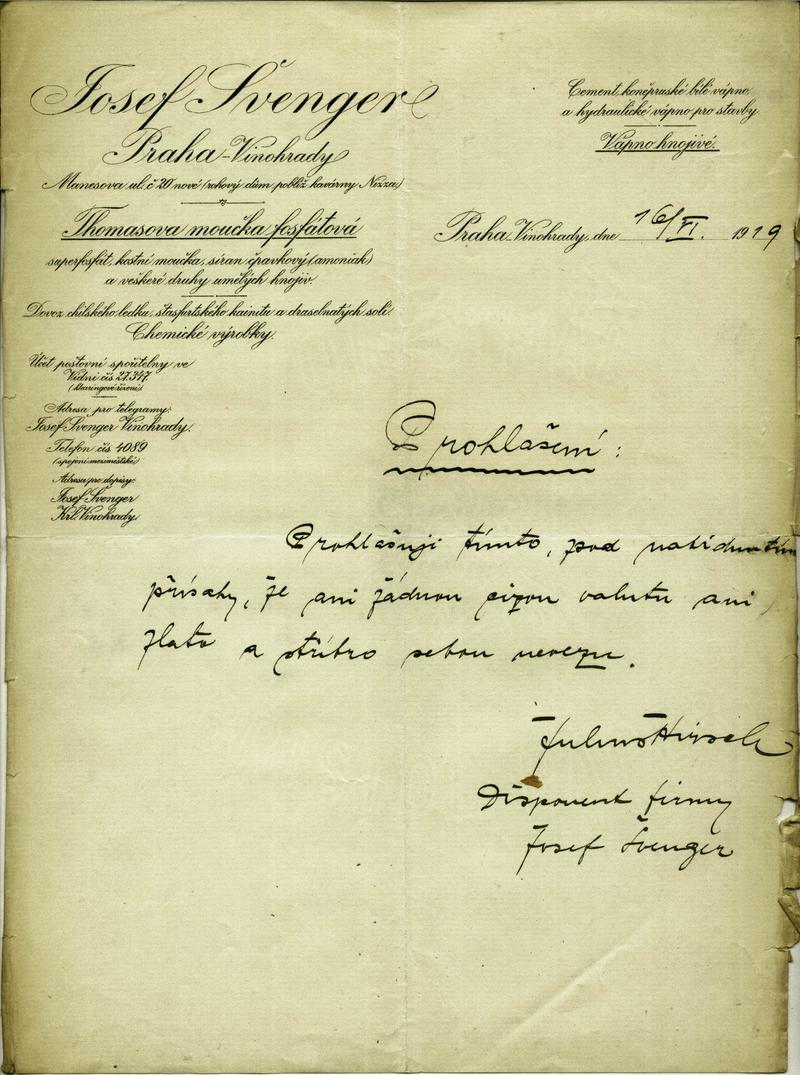 Josef Švenger
Praha-Vinohrady
Manesova ul. č 20 nové (rohový dům poblíž kavárny Nizza)
Thomasova moučka fosfátová
superfosfát, kostní moučka, síran čpavkový (amoniak)
a veškeré druhy umělých hnojiv.
Dovoz chilského ledku, stasfurtského kainitu a draselnatých solí.
Chemické výrobky.
Účet poštovní spořitelny ve
Vídni čís. 27.347.
(klearingové řízení)
Adresa pro telegramy:
Josef Švenger Vinohrady.
Telefon čís. 4089
(spojení meziměstské)
Adresa pro dopisy:
Josef Švenger
Král. Vinohrady
Cement, koněpruské bílé vápno,
a hydraulické vápno pro stavby.
Vápno hnojivé.
Praha-Vinohrady, dne 16/VI. 1919
Prohlášení:
Prohlašuji tímto, pod nabídnutím
přísahy, že ani žádnou cizou valutu ani
zlato a stříbro sebou nevezu.
Julius Hirsch
Disponent firmy
Josef Švenger